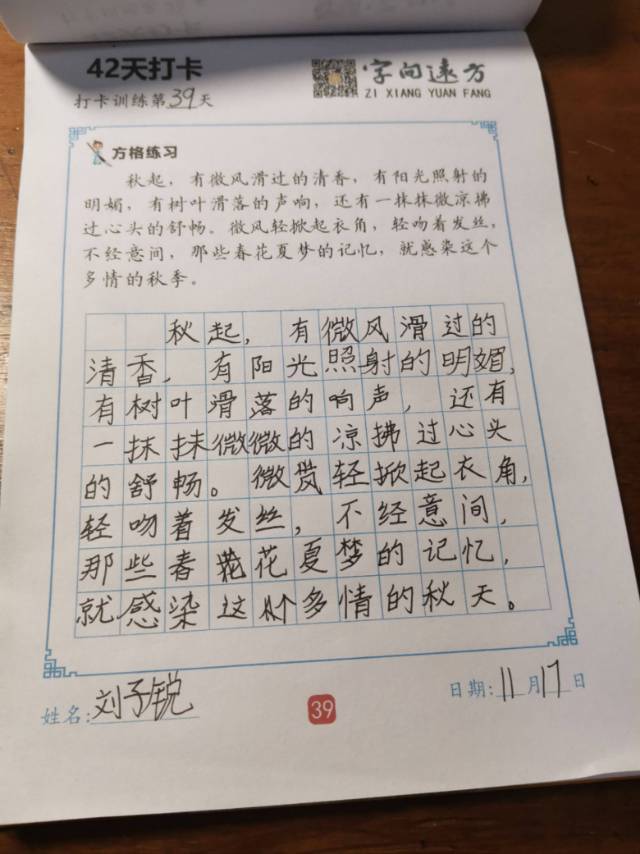 42天打卡
打卡训练第39天
字向远方
ZI XIANG YUAN FANG
方格练习
秋起，有微风滑过的清香，有阳光照射的
明媚，有树叶滑落的声响，还有一抹抹微凉拂
过心头的舒畅。微风轻掀起衣角，轻吻着发丝，
不经意间，那些春花夏梦的记忆，就感染这个
多情的秋季。
秋起，有微风滑过的
清香，有阳光照射的明媚，
有树叶滑落的响声，还有
一抹抹微微的凉拂过心头
的舒畅。微轻掀起衣角，
轻吻着发丝，不经意间，
那些春花夏梦的记忆，
就感染这个多情的秋天。
姓名:刘子锐
39
日期:11月17日